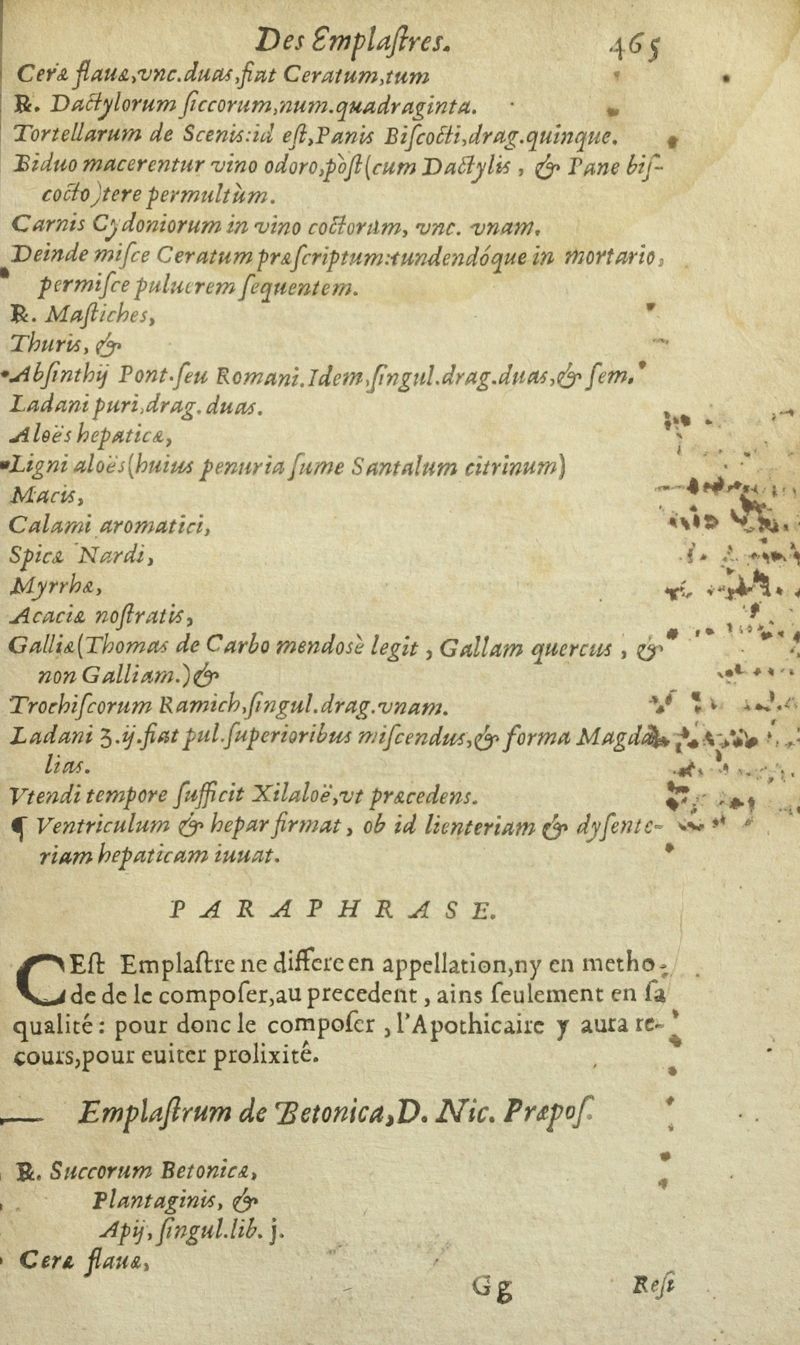 Des Emplaſtres. 465
Ceræ flauæ, vnc. duas, fiat Ceratum, tum
℞. Dactylorum ſiccorum, num. quadraginta.
Tortellarum de Scenis: id eſt, Panis Biſcocti, drag. quinque.
Biduo macerentur vino odoro, pòſt (cum Dactylis, & Pane biſ-
cocto) tere permultùm.
Carnis Cydoniorum in vino coctorum, vnc. vnam.
Deinde miſce Ceratum præſcriptum: tundendóque in mortario,
permiſce puluerem ſequentem.
℞. Maſtiches,
Thuris, &
Abſinthij Pont. ſeu Romani. Idem, ſingul. drag. duas, & ſem.
Ladani puri, drag. duas.
Aloës hepaticæ,
Ligni aloës (huius penuria ſume Santalum citrinum)
Macis,
Calami aromatici,
Spicæ Nardi,
Myrrhæ,
Acaciæ noſtratis,
Galliæ (Thomas de Carbo mendosè legit, Gallam quercus, &
non Galliam.) &
Trochiſcorum Ramich, ſingul. drag. vnam.
Ladani ʒ. ij. fiat pul. ſuperioribus miſcendus, & forma Magda-
lias.
Vtendi tempore ſufficit Xilaloë, vt præcedens.
¶ Ventriculum & hepar firmat, ob id lienteriam & dyſente-
riam hepaticam iuuat.
PARAPHRASE.
CEſt Emplaſtre ne differe en appellation, ny en metho-
de de le compoſer, au precedent, ains ſeulement en ſa
qualité: pour donc le compoſer, l'Apothicaire y aura re-
cours, pour euiter prolixitê.
Emplaſtrum de Betonica, D. Nic. Præpoſ.
℞. Succorum Betonicæ,
Plantaginis, &
Apij, ſingul. lib. j.
Ceræ flauæ,
Gg Reſi